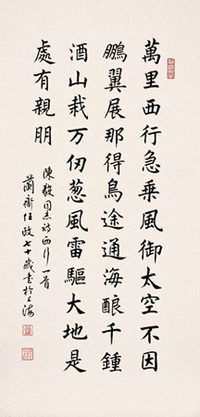 萬里西行急乘風御太空不因
鵬翼展那得鳥途通海酿千鍾
酒山栽万仞葱風雷驅大地是
處有親朋
陳毅同志詩西行一首
蘭齋任政七十歲書於上海